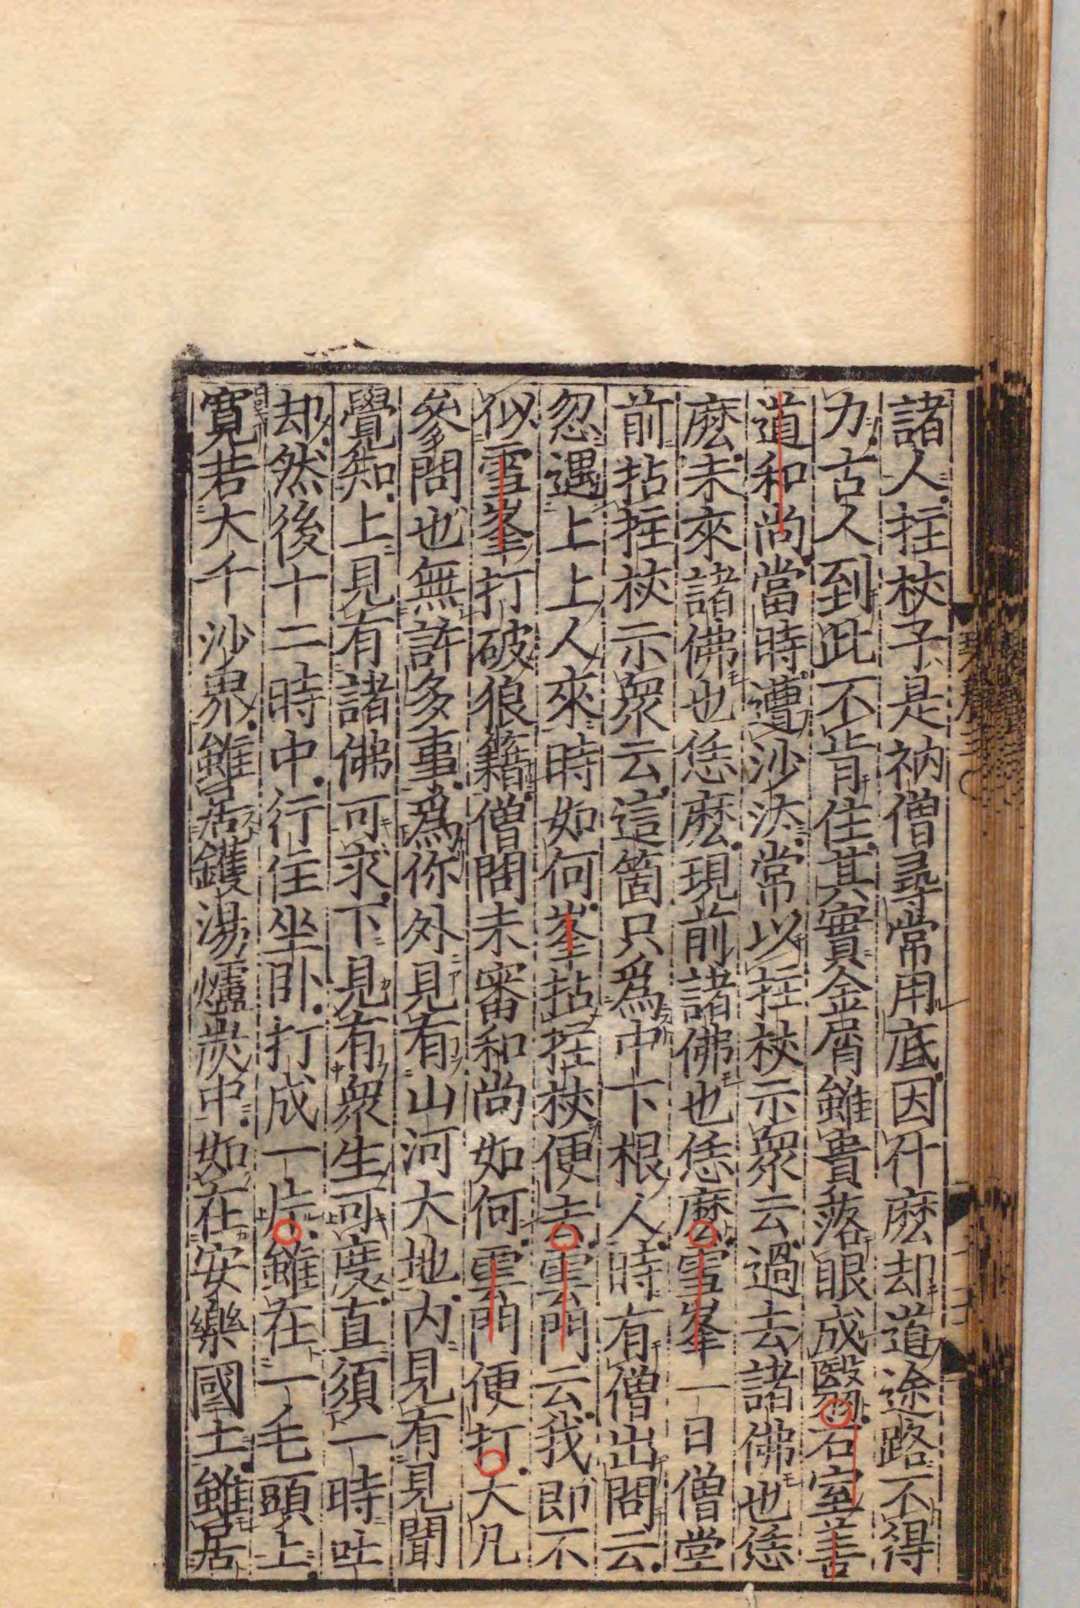 諸人拄杖子是衲僧尋常用底因什麽却道途路不得
力古人到此不肯住其實金屑雖貴落眼成翳石室善
道和尚當時遭沙汰常以拄杖示衆云過去諸佛也恁
麽未來諸佛也恁麽現前諸佛也恁麽雪峯一日僧堂
前拈拄杖示衆云這箇只爲中下根人時有僧出問云
忽遇上上人來時如何峯拈拄杖便去雲門云我即不
似雪峯打破狼籍僧問未審和尚如何雲門便打大凡
參問也無許多事爲你外見有山河大地内見有見聞
覺知上見有諸佛可求下見有衆生可度直須一時吐
却然後十二時中行住坐卧打成一片雖在一毛頭上
寬若大千沙界雖居鑊湯爐炭中如在安樂國土雖居